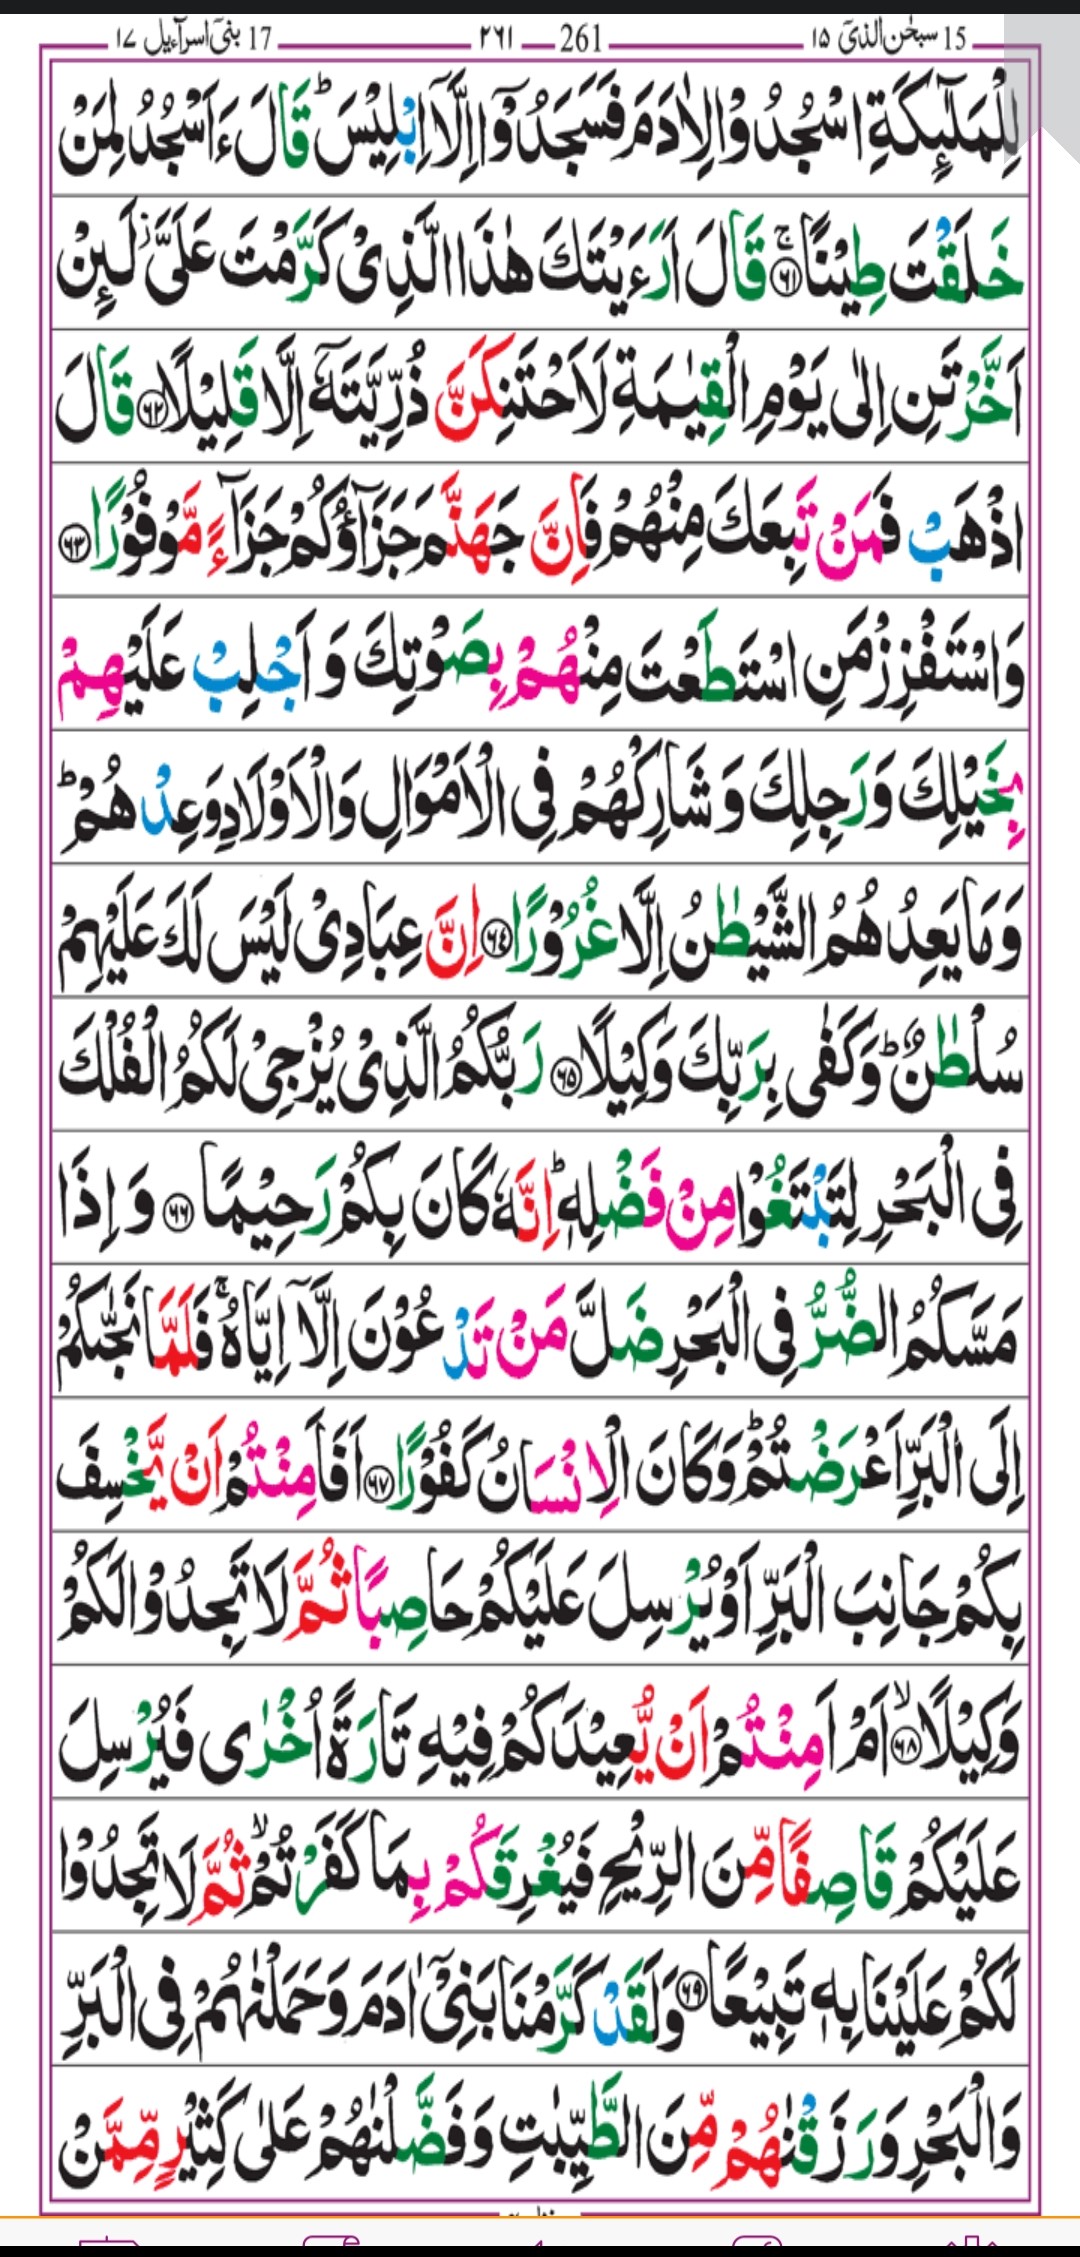 15 سبحٰن الذیٓ ۱۵ 261 ۲۶۱ 17 بنیٓ اسرآءیل ۱۷
لِلْمَلٰٓئِكَةِ اسْجُدُوْا لِاٰدَمَ فَسَجَدُوْۤا اِلَّاۤ اِبْلِیْسَ ؕ قَالَ ءَاَسْجُدُ لِمَنْ
خَلَقْتَ طِیْنًا ۚ۶۱ قَالَ اَرَءَیْتَكَ هٰذَا الَّذِیْ كَرَّمْتَ عَلَیَّ ؗ لَىِٕنْ
اَخَّرْتَنِ اِلٰی یَوْمِ الْقِیٰمَةِ لَاَحْتَنِكَنَّ ذُرِّیَّتَهٗۤ اِلَّا قَلِیْلًا ۶۲ قَالَ
اذْهَبْ فَمَنْ تَبِعَكَ مِنْهُمْ فَاِنَّ جَهَنَّمَ جَزَآؤُكُمْ جَزَآءً مَّوْفُوْرًا ۶۳
وَاسْتَفْزِزْ مَنِ اسْتَطَعْتَ مِنْهُمْ بِصَوْتِكَ وَ اَجْلِبْ عَلَیْهِمْ
بِخَیْلِكَ وَ رَجِلِكَ وَ شَارِكْهُمْ فِی الْاَمْوَالِ وَالْاَوْلَادِ وَعِدْهُمْ ؕ
وَ مَا یَعِدُهُمُ الشَّیْطٰنُ اِلَّا غُرُوْرًا ۶۴ اِنَّ عِبَادِیْ لَیْسَ لَكَ عَلَیْهِمْ
سُلْطٰنٌ ؕ وَكَفٰی بِرَبِّكَ وَكِیْلًا ۶۵ رَبُّكُمُ الَّذِیْ یُزْجِیْ لَكُمُ الْفُلْكَ
فِی الْبَحْرِ لِتَبْتَغُوْا مِنْ فَضْلِهٖ ؕ اِنَّهٗ كَانَ بِكُمْ رَحِیْمًا ۶۶ وَ اِذَا
مَسَّكُمُ الضُّرُّ فِی الْبَحْرِ ضَلَّ مَنْ تَدْعُوْنَ اِلَّاۤ اِیَّاهُ ۚ فَلَمَّا نَجّٰىكُمْ
اِلَی الْبَرِّ اَعْرَضْتُمْ ؕ وَكَانَ الْاِنْسَانُ كَفُوْرًا ۶۷ اَفَاَمِنْتُمْ اَنْ یَّخْسِفَ
بِكُمْ جَانِبَ الْبَرِّ اَوْ یُرْسِلَ عَلَیْكُمْ حَاصِبًا ثُمَّ لَا تَجِدُوْا لَكُمْ
وَكِیْلًا ۙ۶۸ اَمْ اَمِنْتُمْ اَنْ یُّعِیْدَكُمْ فِیْهِ تَارَةً اُخْرٰی فَیُرْسِلَ
عَلَیْكُمْ قَاصِفًا مِّنَ الرِّیْحِ فَیُغْرِقَكُمْ بِمَا كَفَرْتُمْ ۙ ثُمَّ لَا تَجِدُوْا
لَكُمْ عَلَیْنَا بِهٖ تَبِیْعًا ۶۹ وَلَقَدْ كَرَّمْنَا بَنِیْۤ اٰدَمَ وَحَمَلْنٰهُمْ فِی الْبَرِّ
وَالْبَحْرِ وَرَزَقْنٰهُمْ مِّنَ الطَّیِّبٰتِ وَفَضَّلْنٰهُمْ عَلٰی كَثِیْرٍ مِّمَّنْ